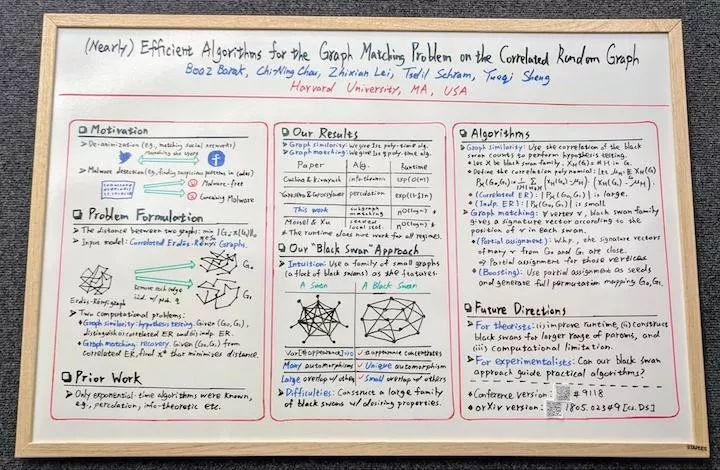 (Nearly) Efficient Algorithms for the Graph Matching Problem on the Correlated Random Graph
Boaz Barak, Chi-Ning Chou, Zhixian Lei, Tselil Schram, Yueqi Sheng
Harvard University, MA, USA
Motivation
➤ De-anonimization (e.g., matching social networks)
Matching the users
➤ Malware detection (e.g., finding suspicious patterns in codes)
Malware-free
Containing Malware
Problem Formulation
➤ The distance between two graphs: min ||G₀-π(G₁)||₀
➤ Input model: Correlated Erdős-Rényi Graphs.
G₀
Remove each edge
i.i.d. w/ prob.
G₁
Erdős-Rényi graph
➤ Two computational problems:
• Graph similarity: hypothesis testing. Given (G₀,G₁),
distinguish correlated ER and indep. ER.
• Graph matching: recovery. Given (G₀,G₁) from
correlated ER, find π* that minimizes distance.
Prior Work
➤ Only exponential-time algorithms were known,
e.g., percolation, info-theoretic etc.
Our Results
➤ Graph similarity: We give 1st poly-time alg.
➤ Graph matching: We give 1st poly-time alg.
Paper Alg. Runtime
Cullina & Kiyavash info-theoretic exp(O(n))
Yartseva & Grossglauser percolation
This work subgraph matching
Mossel & Xu seeded local stat.
* The runtime does not work for all regimes.
Our "Black Swan" Approach
➤ Intuition: Use a family of small graphs
(a flock of black swans) as the features.
A Swan A Black Swan
appearance concentrates
Many automorphism ✓ Unique automorphism
Large overlap w/ others ✓ Small overlap w/ others
➤ Difficulties: Construct a large family
of black swans w/ desiring properties.
Algorithms
Graph similarity: Use the correlation of the black
swan counts to perform hypothesis testing.
• (Correlated ER): is large.
• (Indp. ER): is small.
Graph matching: ∀ vertex v, black swan family
gives a signature vector according to the
position of v in each swan.
• (Partial assignment): W.h.p., the signature vectors
of many v from G₀ and G₁ are close.
⇒ Partial assignment for those vertices
• (Boosting): Use partial assignment as seeds
and generate full permutation mapping G₀, G₁.
Future Directions
➤ For theorists: (i) improve runtime, (ii) construct
black swans for larger range of params, and
(iii) computational limitation.
➤ For experimentalists: Can our black swan
approach guide practical algorithms?
• Conference version: #9118
• arXiv version: 1805.02349 [cs.DS]
STAPLES